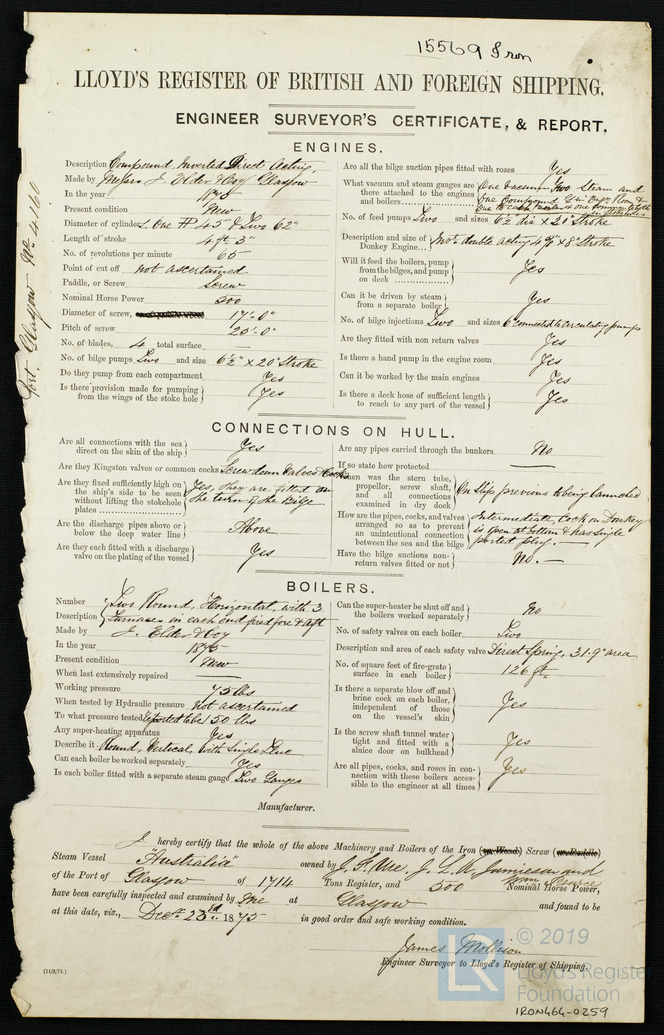 15569 Iron
LLOYD'S REGISTER OF BRITISH AND FOREIGN SHIPPING.
ENGINEER SURVEYOR'S CERTIFICATE, & REPORT.
Port Glasgow No. 4160
ENGINES.
Description Compound Inverted Direct Acting,
Made by Messrs J. Elder & Coy Glasgow
In the year 1875
Present condition New
Diameter of cylinders. One HP 45" & Two 62"
Length of stroke 4 ft 3"
No. of revolutions per minute 65
Point of cut off not ascertained
Paddle, or Screw Screw
Nominal Horse Power 500
Diameter of screw, 17'-0"
Pitch of screw 23'-0"
No. of blades, 4 total surface
No. of bilge pumps Two and size 6½" x 20" Stroke
Do they pump from each compartment Yes
Is there provision made for pumping from the wings of the stoke hole } Yes
Are all the bilge suction pipes fitted with roses Yes
What vacuum and steam gauges are there attached to the engines and boilers } One vacuum Two Steam and
One Compound in Engr Room &
No. of feed pumps Two and sizes 6½ dia x 20" Stroke
Description and size of Donkey Engine } double acting x 8" Stroke
Will it feed the boilers, pump from the bilges, and pump on deck } Yes
Can it be driven by steam from a separate boiler } Yes
No. of bilge injections Two and sizes 6" connected to circulating pumps
Are they fitted with non return valves Yes
Is there a hand pump in the engine room Yes
Can it be worked by the main engines Yes
Is there a deck hose of sufficient length to reach to any part of the vessel } Yes
CONNECTIONS ON HULL.
Are all connections with the sea direct on the skin of the ship } Yes
Are they Kingston valves or common cocks Screw down Valves & Cocks
Are they fixed sufficiently high on the ship's side to be seen without lifting the stokehole plates } Yes, they are fitted on
the turn of the Bilge
Are the discharge pipes above or below the deep water line } Above
Are they each fitted with a discharge valve on the plating of the vessel } Yes
Are any pipes carried through the bunkers. No
If so state how protected
When was the stern tube, propellor, screw shaft, and all connections examined in dry dock } On Slip previous to being launched
How are the pipes, cocks, and valves arranged so as to prevent an unintentional connection between the sea and the bilge } Intermediate, Cock on Donkey
is open at bottom & has single
ported plug.
Have the bilge suctions non-return valves fitted or not } No.
BOILERS.
Number Description } Two Round, Horizontal, with 3
furnaces in each end fired fore & aft
Made by J. Elder & Coy
In the year 1875
Present condition New
When last extensively repaired
Working pressure 75 lbs
When tested by Hydraulic pressure not ascertained
To what pressure tested Reported to be 150 lbs
Any super-heating apparatus Yes
Describe it Round, Vertical, with Single Flue
Can each boiler be worked separately Yes
Is each boiler fitted with a separate steam gauge Two Gauges
Can the super-heater be shut off and the boilers worked separately } No
No. of safety valves on each boiler Two
Description and area of each safety valve Direct Spring, 31.9" area
No. of square feet of fire-grate surface in each boiler } 126 ft.
Is there a separate blow off and brine cock on each boiler, independent of those on the vessel's skin } Yes
Is the screw shaft tunnel water tight and fitted with a sluice door on bulkhead } Yes
Are all pipes, cocks, and roses in connection with these boilers accessible to the engineer at all times } Yes
Manufacturer.
I hereby certify that the whole of the above Machinery and Boilers of the Iron (or Wood) Screw (or Paddle)
Steam Vessel "Australia" owned by J. F. Ure, J. L. K. Jamieson and
Wm Pearce
of the Port of Glasgow of 1714 Tons Register, and 500 Nominal Horse Power,
have been carefully inspected and examined by Me at Glasgow and found to be
at this date, viz., Decr 23rd 1875 in good order and safe working condition.
James Mollison
Engineer Surveyor to Lloyd's Register of Shipping.
(11/3/75.)
LR © 2019
Lloyd's Register
Foundation
IRON464-0259